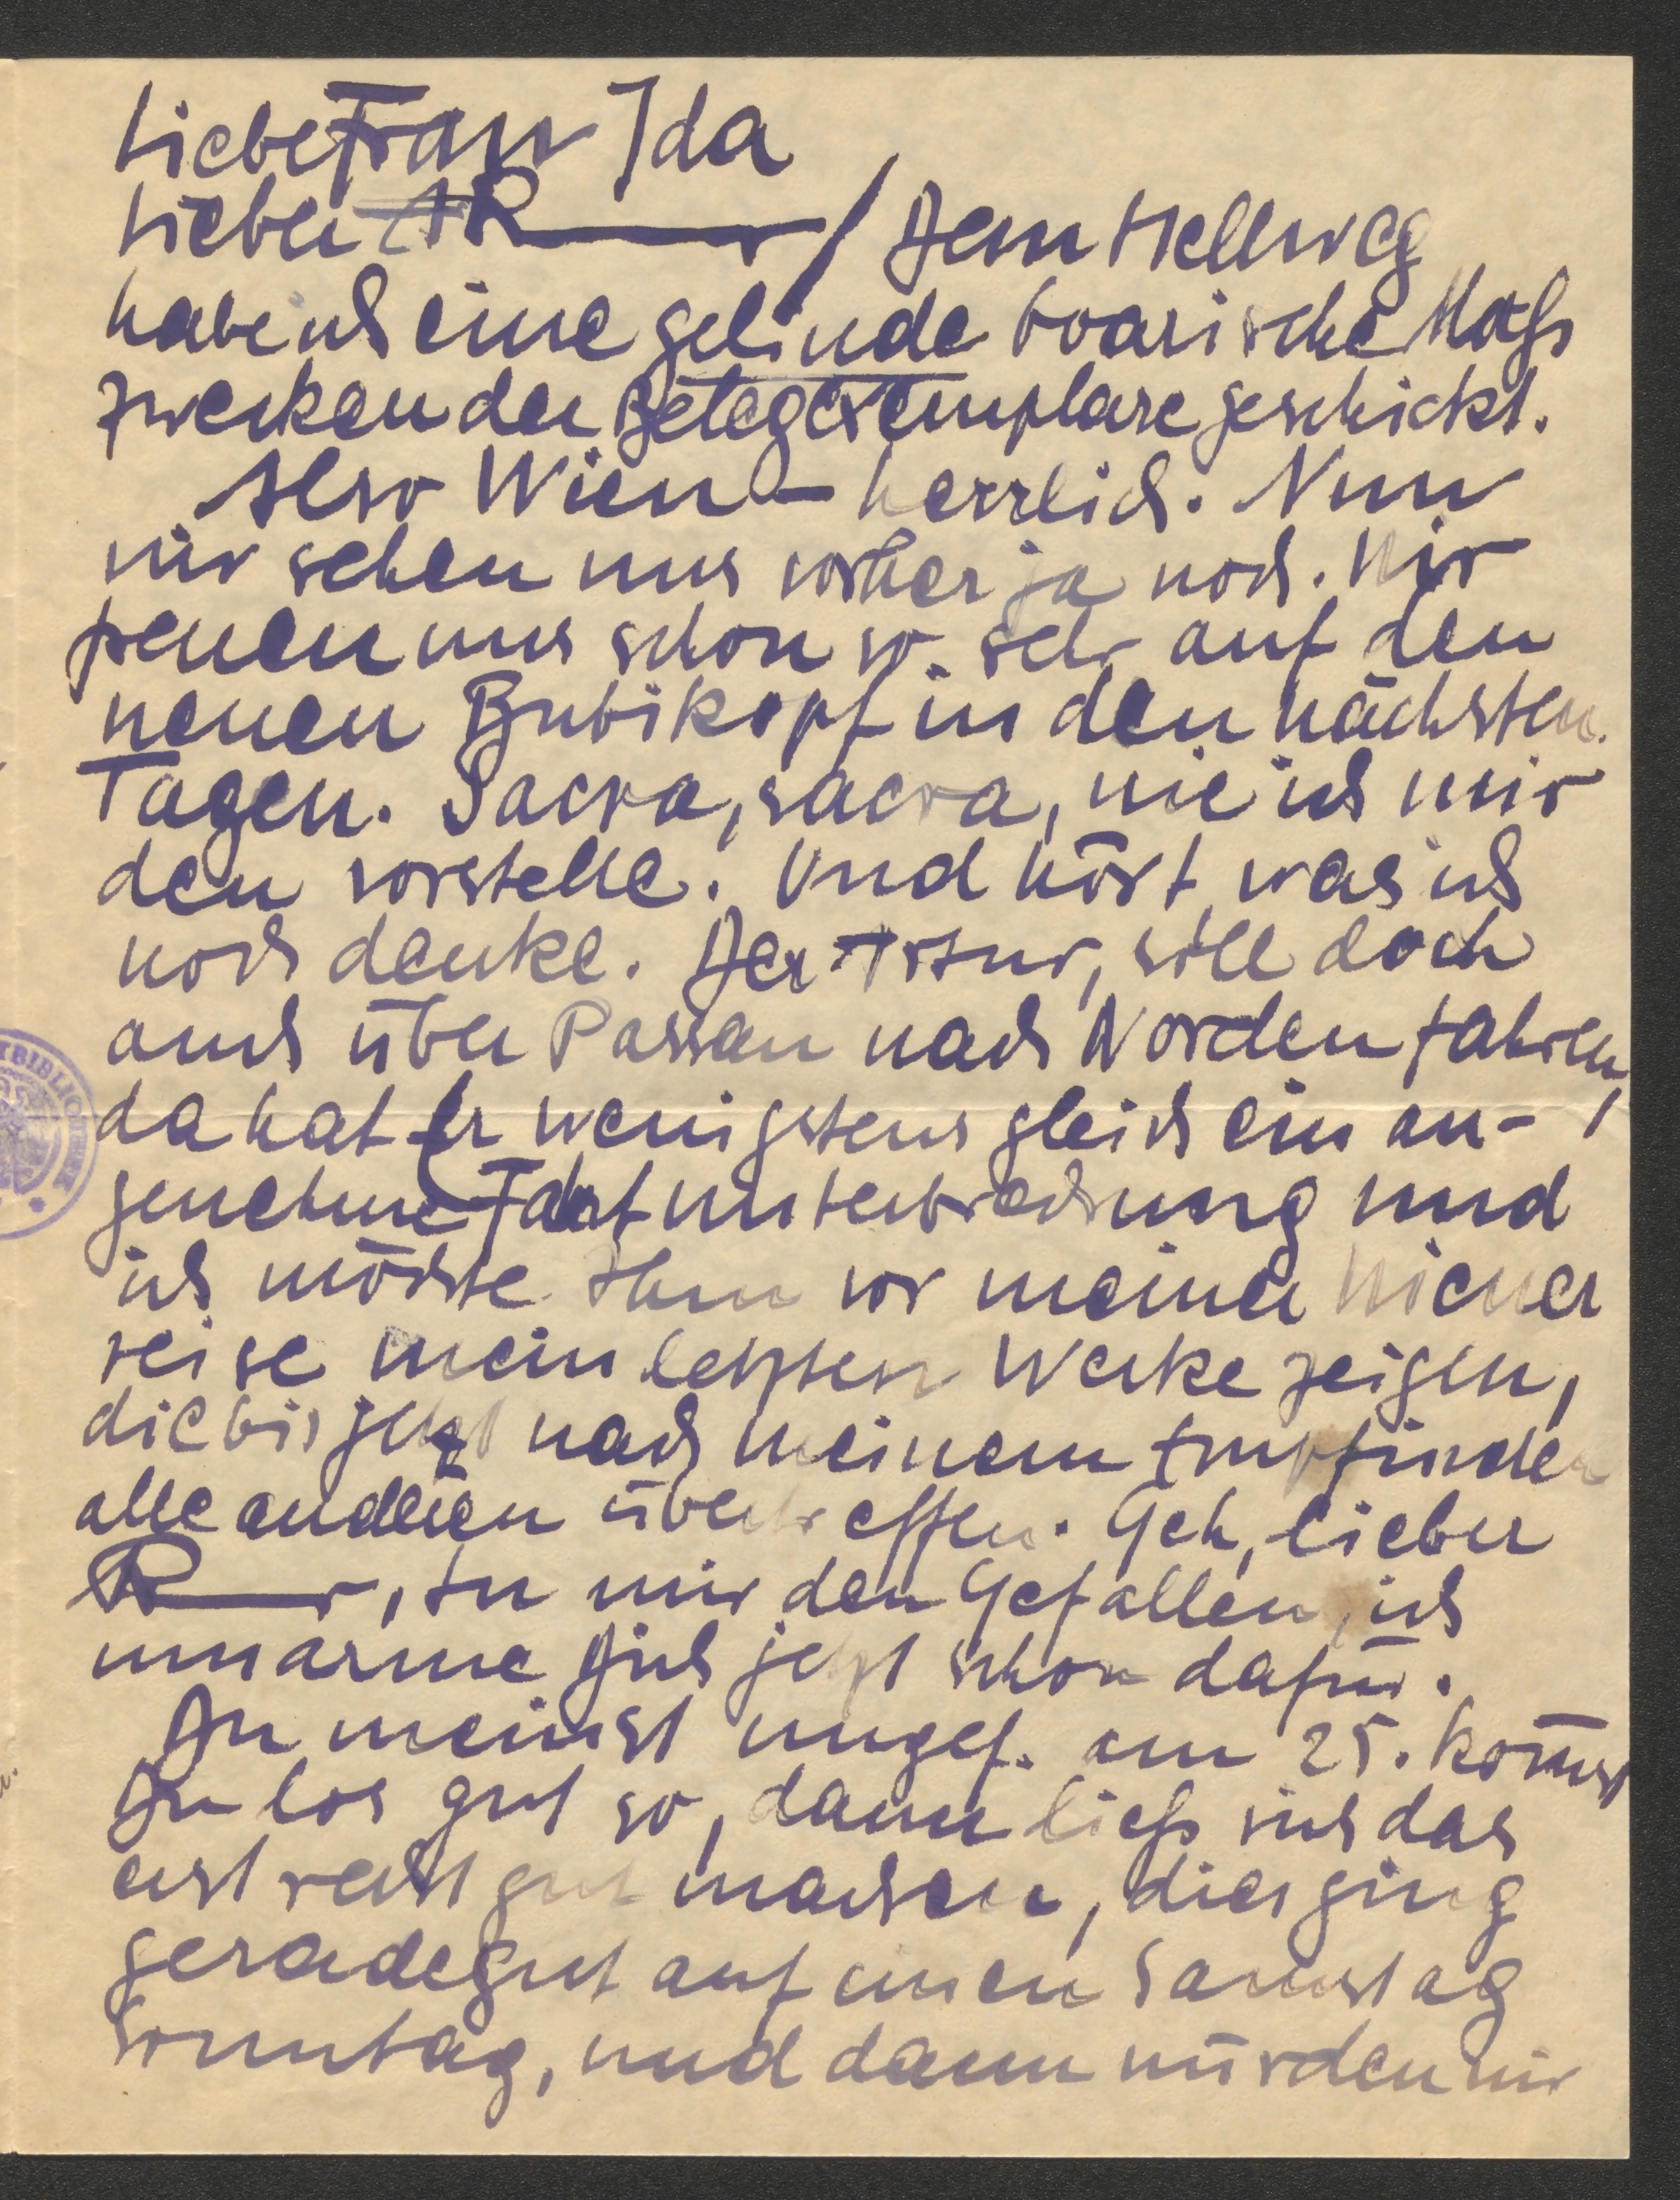 Liebe Frau Ida
Lieber AR / Dem Hellweg
habe ich eine gelinde boarische Mahs
zwecken der Belegexemplare geschickt.
Also Wien – herrlich. Nun
wir sehen uns vorher ja noch. Wir
freuen uns schon so sehr auf den
neuen Bubikopf in den nächsten
Tagen. Sacra, sacra, wie ich mir
den vorstelle. Und hört, was ich
noch denke. Der Artur, soll doch
auch über Passau nach Norden fahren,
da hat Er wenigstens gleich ein an-
genehme Fahrtunterbrechung und
ich möchte Ihm vor meiner Wiener
reise mein letzten Werke zeigen,
die bis jetzt nach meinem Empfinden
alle anderen übertreffen. Geh, lieber
R, tu mir den Gefallen, ich
umarme Dich jetzt schon dafür.
Du meinst ungef. am 25. kom̄st
Du los gut so, dann ließ sich das
erst recht gut machen, dies ging
gerade gut auf einen Samstag
Sonntag, und dann würden wir